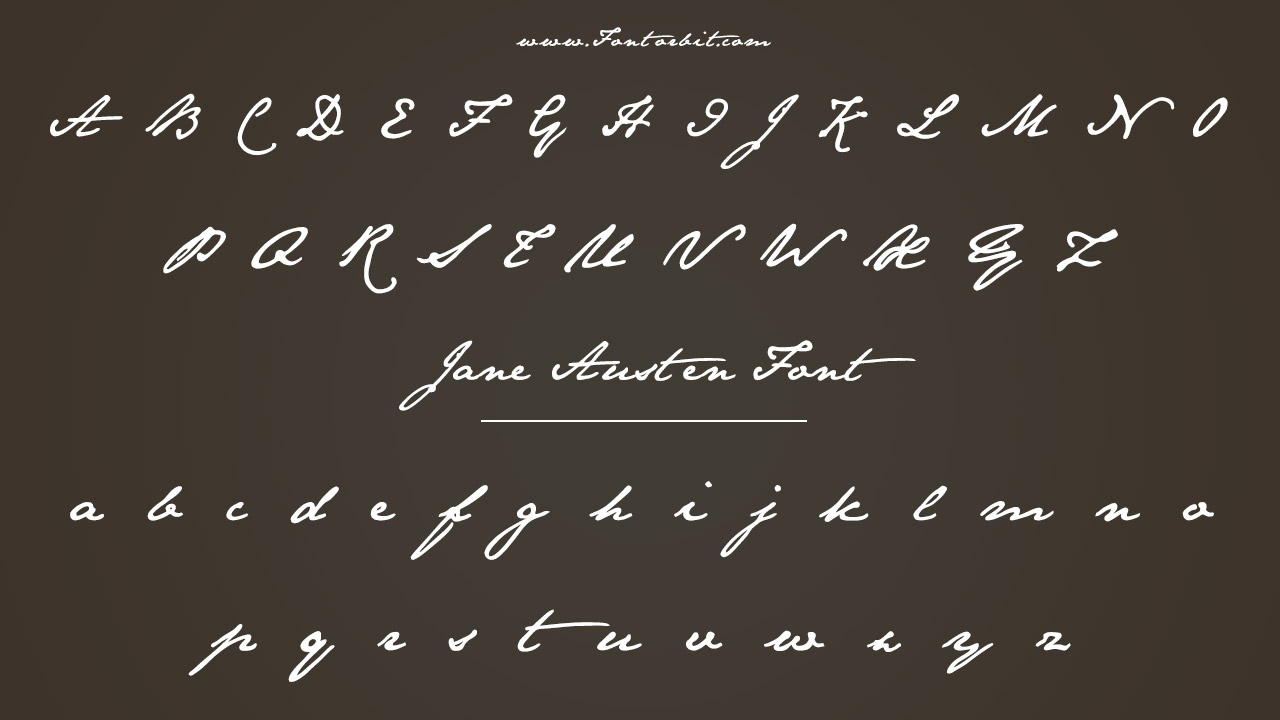 www.Fontorbit.com
A B C D E F G H I J K L M N O
P Q R S T U V W X Y Z
Jane Austen Font
a b c d e f g h i j k l m n o
p q r s t u v w x y z